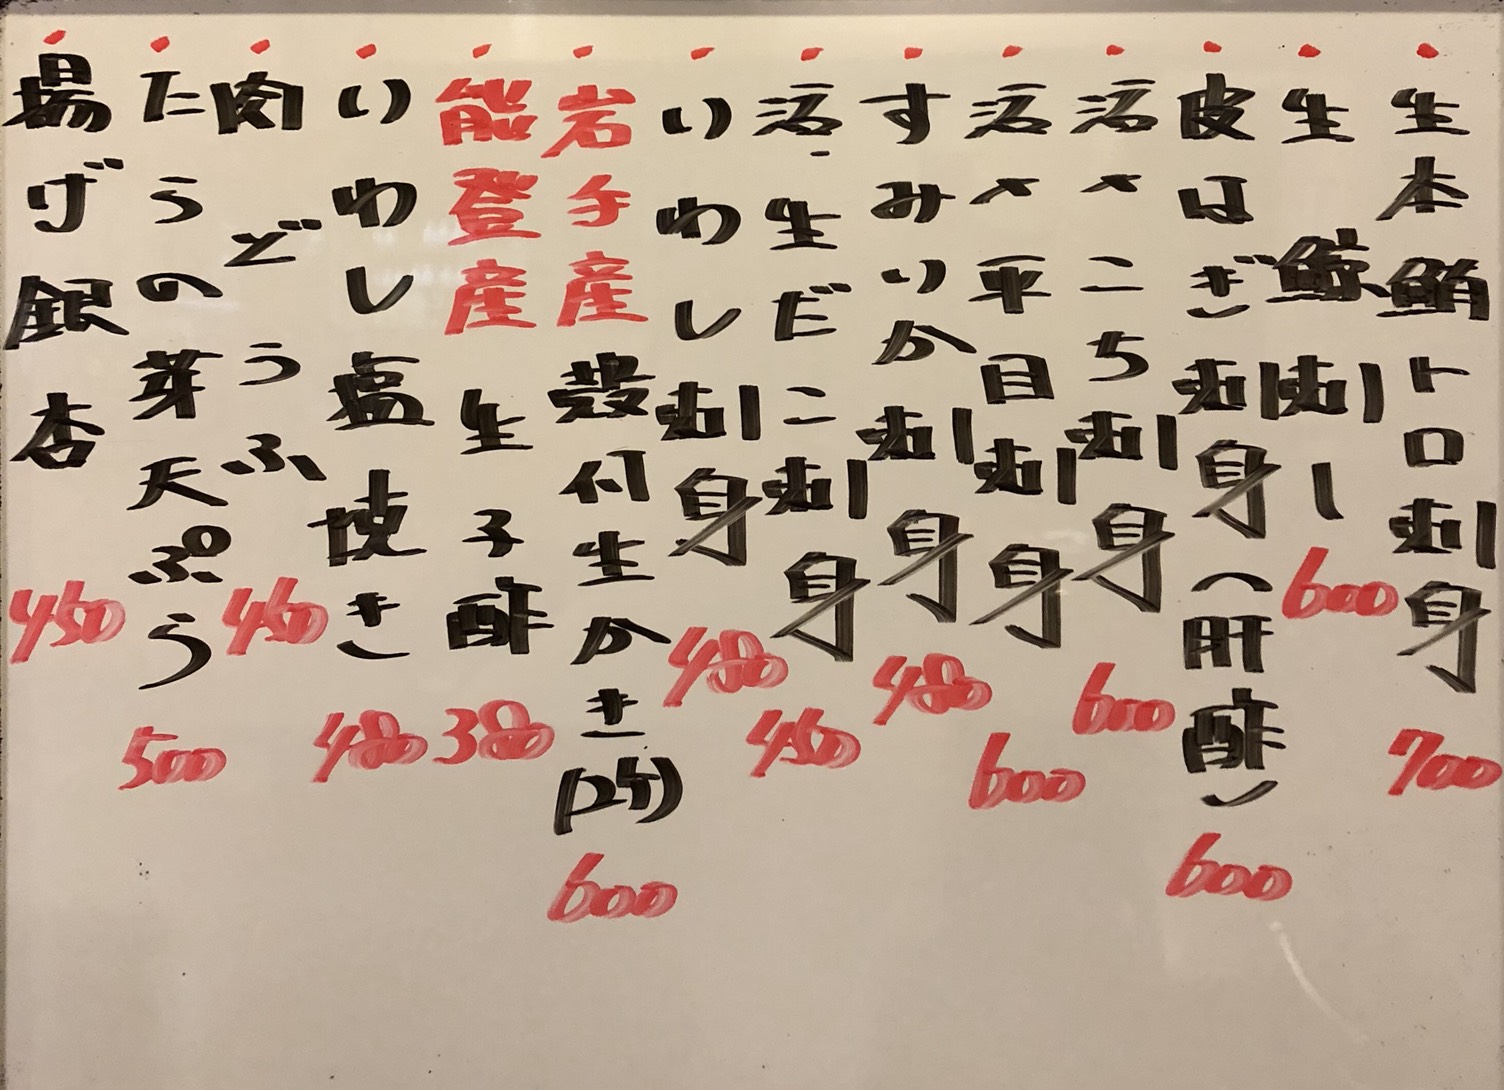 生本鮪トロ刺身 700
生鯨刺し 600
皮はぎ刺身(肝酢) 600
活〆こち刺身 600
活〆平目刺身 600
すみいか刺身 480
活生だこ刺身 450
いわし刺身 480
岩手産殻付生かき(2ケ) 600
能登産生子酢 380
いわし塩焼き 480
肉どうふ 450
たらの芽天ぷら 500
揚げ銀杏 450